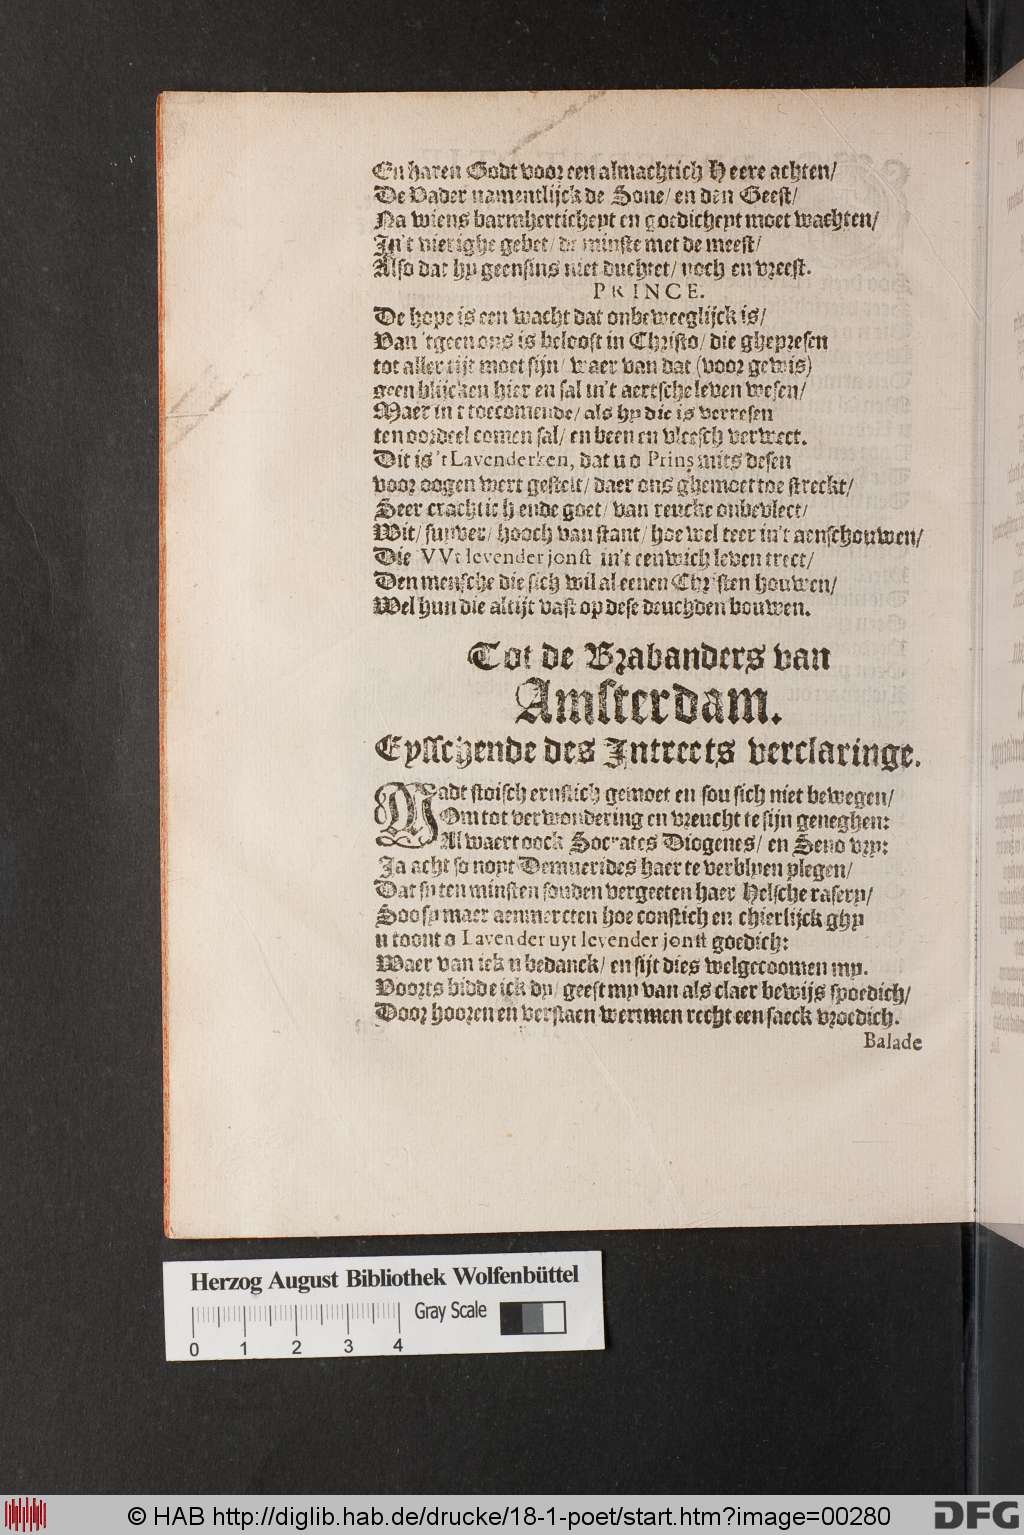 En haren Godt voor een almachtich Heere achten/
De Vader namentlijck de Sone/ en den Geest/
Na wiens barmherticheyt en goedicheyt moet wachten/
In't vierighe gebet/ de minste met de meest/
Also dat hy geensins niet duchtet/ noch en vreest.
PRINCE.
De hope is een wacht dat onbeweeglijck is/
Van 'tgeen ons is beloost in Christo/ die ghepresen
tot aller tijt moet sijn/ waer van dat (voor gewis)
geen blijcken hier en sal in't aertsche leven wesen/
Maer in t toecomende/ als hy die is verresen
ten oordeel comen sal/ en been en vleesch verweet.
Dit is 't Lavenderken, dat u o Prins mits desen
voor oogen wert gestelt/ daer ons ghemoet toe streckt/
Seer crachtich ende goet/ van reucke onbevlect/
Wit/ suyver/ hooch van stant/ hoe wel teer in't aenschouwen/
Die VVt levender jonst in't eenwich leven trect/
Den mensche die sich wil aleenen Christen houwen/
Wel hun die altijt vast op dese deuchden bouwen.
Tot de Brabanders van
Amsterdam.
Eysschende des Intreets verclaringe.
Wadt stoisch ernstich gemoet en sou sich niet bewegen/
Om tot verwondering en vreucht te sijn geneghen:
Al waert oock Socrates Diogenes/ en Seno vry:
Ja acht so noyt Demuerides haer te verblyen plegen/
Dat sy ten minsten souden vergeeten haer Helsche rasery/
Soo sy maer aenmercten hoe constich en chierlijck ghy
u toont o Lavender uyt levender jonst goedich:
Waer van ick u bedanck/ en sijt dies welgecoomen my.
Voorts bidde ick dy/ geeft my van als claer bewijs spoedich/
Door hooren en verstaen wertmen recht een saeck vroedich.
Balade
Herzog August Bibliothek Wolfenbüttel
Gray Scale
0 1 2 3 4
© HAB http://diglib.hab.de/drucke/18-1-poet/start.htm?image=00280
DFG